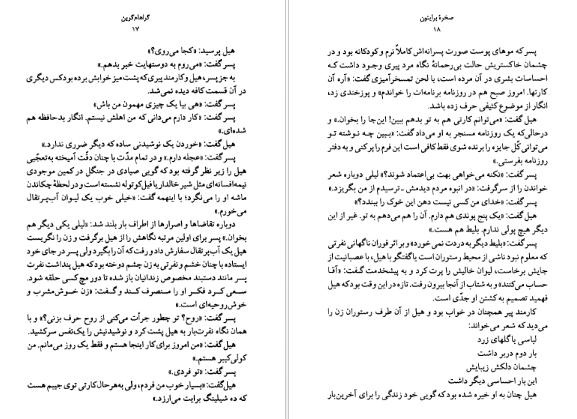 گراهام‌گرین
۱۷
هیل پرسید: «کجا می‌روی؟»
پسر گفت: «می‌روم به دوستهایت خبر بدهم.»
به جز پسر، هیل و کارمند پیری که پشت میز خوابش برده بود کس دیگری
در آن قسمت کافه دیده نمی‌شد.
پسر گفت: «هی بیا یک چیزی مهمون من باش»
پسر گفت: «کار دارم می‌دانی که من اهلش نیستم. انگار بدحافظه هم
شده‌ای.»
هیل گفت: «خوردن یک نوشیدنی ساده که دیگر ضرری ندارد.»
پسر گفت: «عجله دارم.» و در تمام مدّت با چنان دقّت آمیخته به‌تعجّبی
هیل را زیر نظر گرفته بود که گویی صیادی در جنگل در کمین موجودی
نیمه‌افسانه‌ای مثل شیر خالدار یا فیل کوتوله نشسته است و در لحظهٔ چکاندن
ماشه او را می‌نگرد؛ با اینهمه گفت: «خیلی خوب یک لیوان آب‌پرتقال
می‌خورم.»
دوباره تقاضاها و اصرارها از اطراف بار بلند شد: «لیلی یکی دیگر هم
بخوان.» پسر برای اولین مرتبه نگاهش را از هیل برگرفت و زن را نگریست
هیل یک آب‌پرتقال سفارش داد و رفت که آن را بگیرد ولی پسر در جای خود
ایستاده با چنان خشم و نفرتی به زن چشم دوخته بود که هیل پنداشت نفرت
پسر مانند دستبند مخصوص زندانیان باز شده تا دور مچ کسی حلقه شود.
سعی کرد فکر او را منصرف کند و گفت: «زن خوش‌مشرب و
خوش‌روحیه‌ای است.»
پسر گفت: «روح؟ تو چطور جرأت می‌کنی از روح حرف بزنی؟» و با
همان نگاه نفرت‌بار به هیل پشت کرد و نوشیدنیش را یک‌نفس سرکشید.
هیل گفت: «من امروز برای کار اینجا هستم و فقط یک روز می‌مانم. من
کولی‌کیبر هستم.»
پسر گفت: «تو فردی.»
هیل‌گفت: «بسیار خوب من فردم، ولی به‌هرحال کارتی توی جیبم هست
که ده شیلینگ برایت می‌ارزد.»
صخرهٔ برایتون
۱۸
پسر که موهای پوست صورت پسرانه‌اش کاملاً نرم و کودکانه بود و در
چشمان خاکستریش حالت بی‌رحمانهٔ نگاه مرد پیری وجود داشت که
احساسات بشری در آن مرده است، با لحن تمسخرآمیزی گفت: «آره آن
کارتها. امروز صبح هم در روزنامه برنامه‌ات را خواندم» و پوزخندی زد،
انگار از موضوع کثیفی حرف زده باشد.
هیل گفت: «می‌توانم کارتی هم به تو بدهم ببین! این‌جا را بخوان.» و
درحالی‌که یک روزنامه مسنجر به او می‌داد گفت: «ببین چه نوشته تو
می‌توانی کُل جایزه را برنده شوی فقط کافی است این فرم را پرکنی و به دفتر
روزنامه بفرستی.»
پسر گفت: «نکنه می‌خواهی بهت بی‌اعتماد شوند؟» لیلی دوباره شعر
خواندن را از سرگرفت: «در انبوه مردم دیدمش ـ ترسیدم از من بگریزد.»
پسر گفت: «خدای من کسی نیست دهن این خوک را ببندد؟»
هیل گفت: «یک پنج پوندی هم دارم. آن را هم می‌دهم به تو. غیر از این
دیگر هیچ پولی ندارم. بلیط هم هست.»
پسر گفت: «بلیط دیگر به دردت نمی‌خورد» و بر اثر فوران ناگهانی نفرتی
که معلوم نبود ناشی از محیط رستوران است یا گفتگو با هیل، با عصبانیت از
جایش برخاست، لیوان خالیش را پرت کرد و به پیشخدمت گفت: «آقا
حساب می‌کنند» و به شتاب از آنجا بیرون رفت. تازه در این وقت بود که هیل
فهمید تصمیم به کشتن او جدّی است.
کارمند پیر همچنان در خواب بود و هیل از آن طرف رستوران زن را
می‌دید که شعر می‌خواند:
لباسی با گلهای زرد
بار دوم دربر داشت
چشمان دلکش زیبایش
این بار احساسی دیگر داشت
هیل چنان به او خیره شده بود که گویی خود زندگی را برای آخرین‌بار